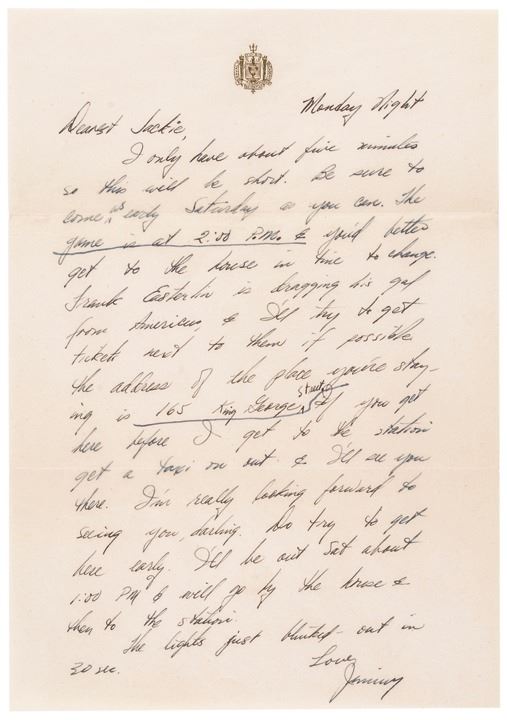 Monday Night
Dearest Jackie,
I only have about five minutes
so this will be short. Be sure to
come as early Saturday as you can. The
game is at 2:00 P.M. & you'd better
get to the house in time to change.
Frank Easterlin is dragging his gal
from Americus, & I'll try to get
tickets next to them if possible.
The address of the place you're stay-
ing is 165 King George Street. If you get
here before I get to the station
get a taxi on out & I'll see you
there. I'm really looking forward to
seeing you, darling. Do try to get
here early. I'll be out Sat about
1:00 PM & will go by the house &
then to the station.
The lights just blinked - out in
30 sec.
Love,
Jimmy